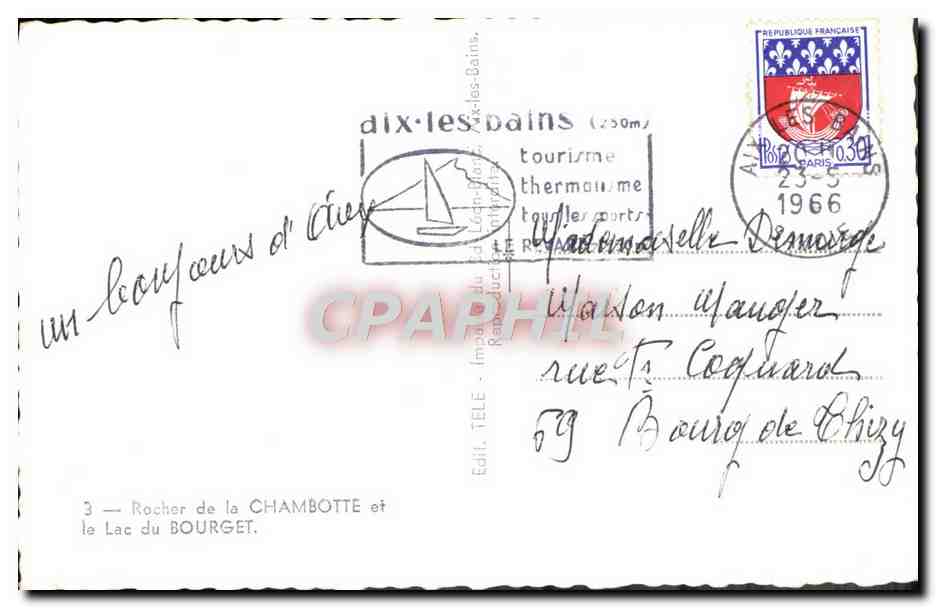 REPUBLIQUE FRANÇAISE
Postes 0,30F
PARIS
AIX LES BAINS
23-5
1966
aix·les·bains (250m)
tourisme
thermalisme
tous les sports
un bonjour d'Aix
Mademoiselle Demarge
Maison Mauger
rue Coquard
69 Bourg de Thizy
CPAPHIL
Edit. TELE - Impasse du Sal Léon-Blanc, Aix-les-Bains.
Reproduction Interdite.
3 — Rocher de la CHAMBOTTE et
le Lac du BOURGET.